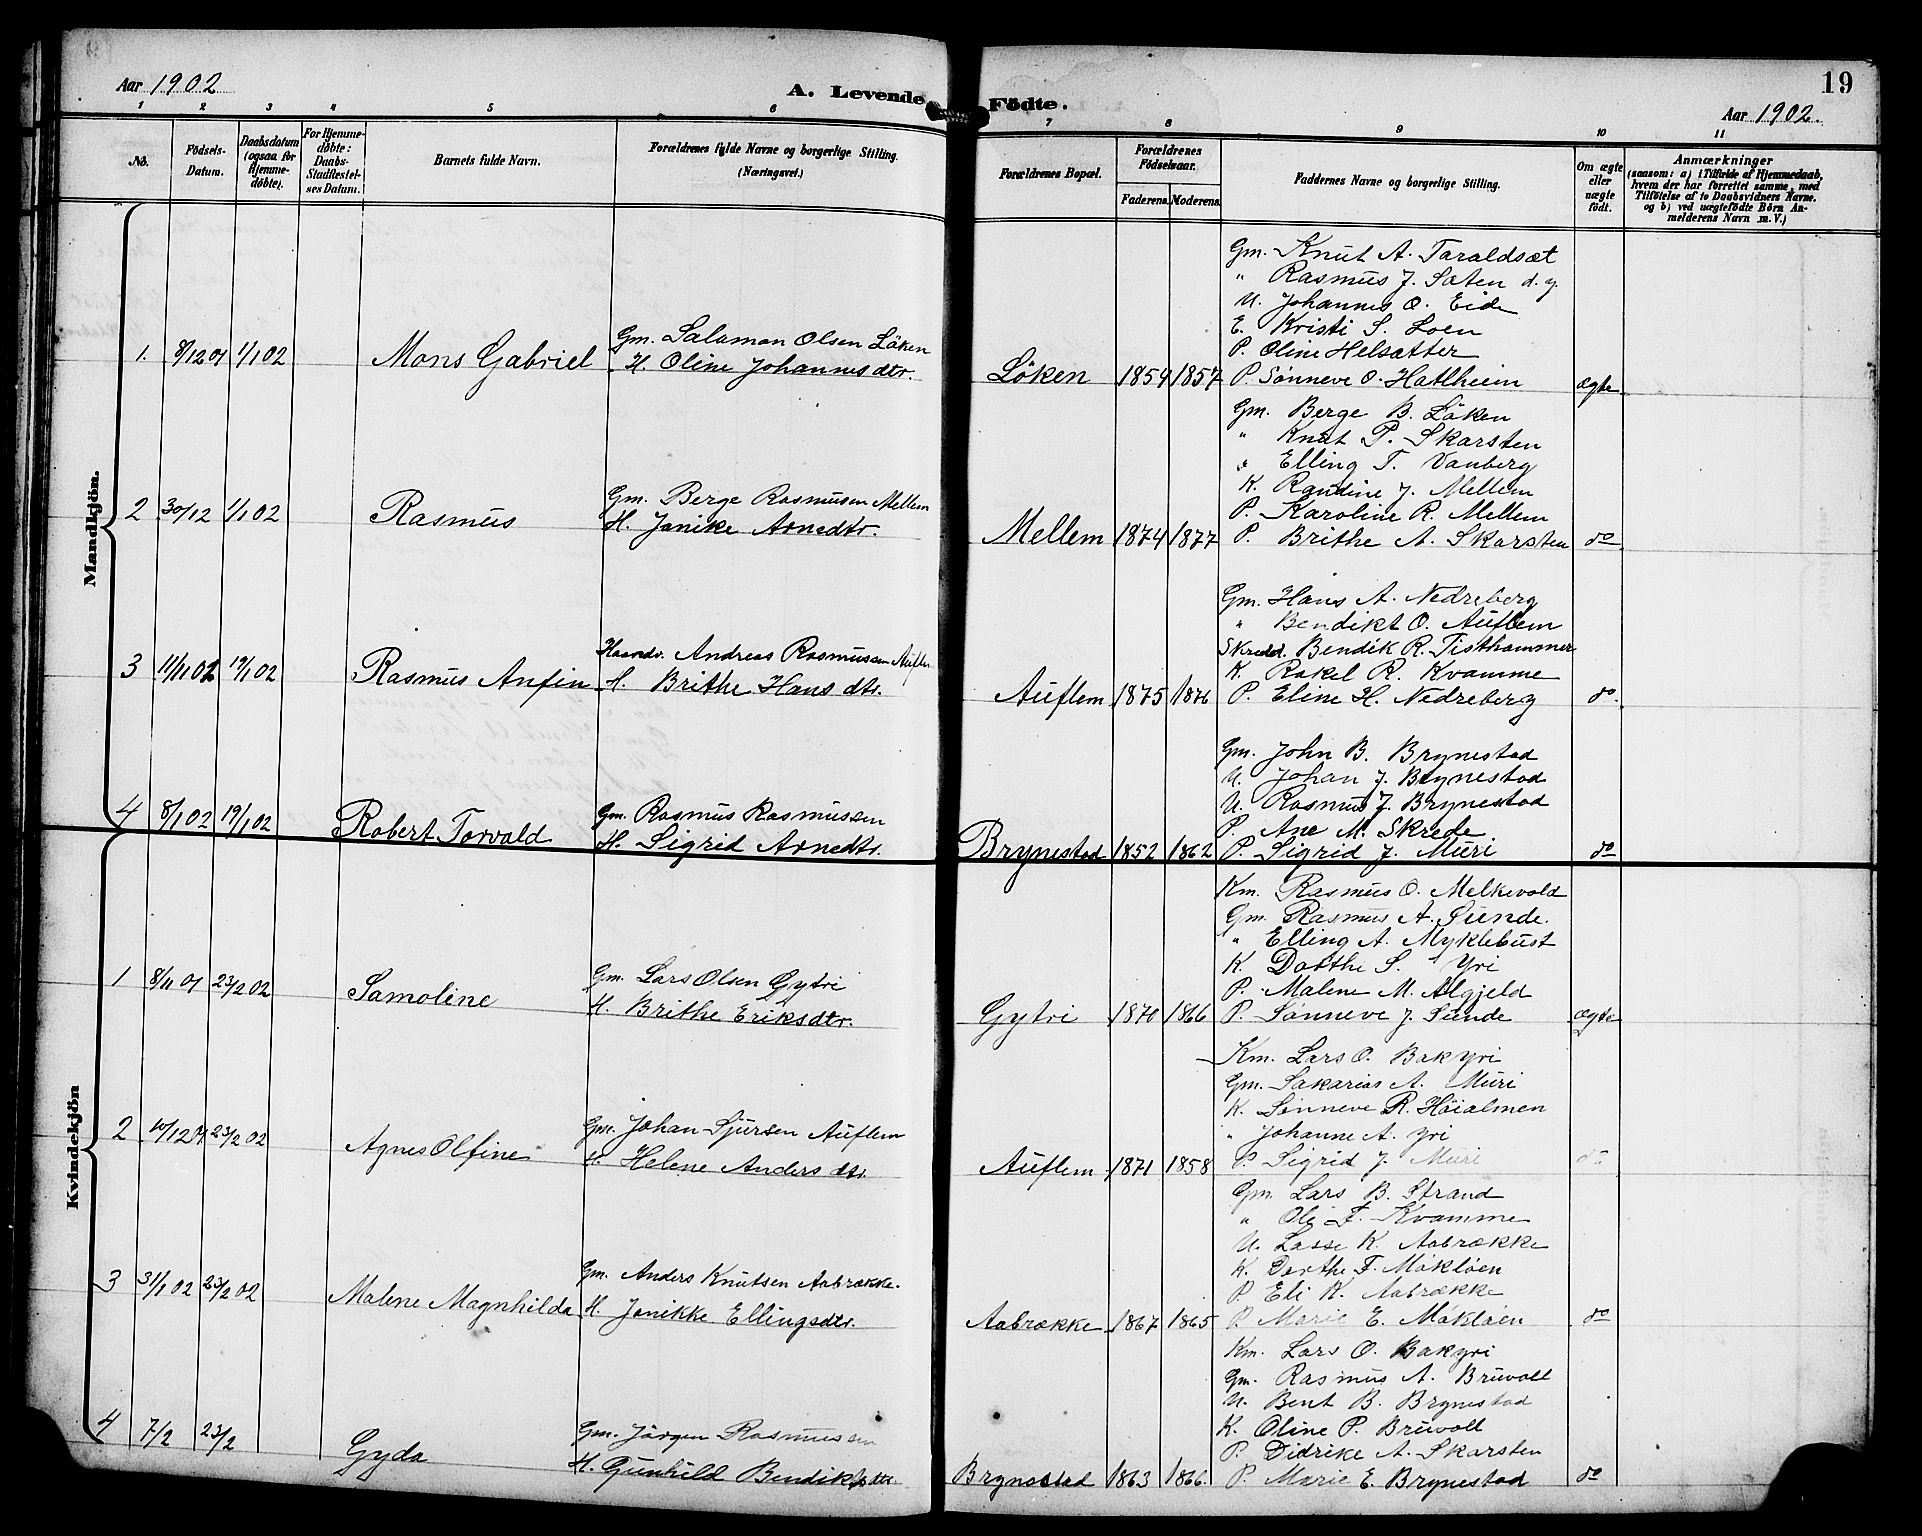 Aar 1902
A. Levende Fødte.
19
Aar 1902.
1 2 3 4 5 6 7 8 9 10 11
No.
Fødsels-Datum.
Daabsdatum (ogsaa for Hjemmedøbte).
For Hjemmedøbte: Daabs-Stadfestelses Datum.
Barnets fulde Navn.
Forældrenes fulde Navne og borgerlige Stilling. (Næringsvei.)
Forældrenes Bopæl.
Forældrenes Fødselsaar.
Faderens. Moderens.
Faddernes Navne og borgerlige Stilling.
Om ægte eller uægte født.
Anmærkninger
(saasom: a) i Tilfælde af Hjemmedaab, hvem der har forrettet samme, med Tilføielse af to Daabsvidners Navne. og b) ved uægtefødte Børn Anmelderens Navn m. V.)
Mandkjön.
Gm. Knut A. Taraldsæt
" Rasmus J. Sæten d. y.
U. Johannes O. Eide
E. Kristi S. Loen
P. Oline Helsætter
1. 8/12 01 1/1 02 Mons Gabriel Gm. Salamon Olsen Löken
H. Oline Johannesdtr. Löken 1859 1857 P. Sønneve O. Hatlheim ægte
Gm. Berge B. Löken
" Knut P. Skarsten
" Elling T. Vanberg
K. Randine J. Mellem
P. Karoline R. Mellem
2 30/12 1/1 02 Rasmus Gm. Berge Rasmusen Mellem
H. Janike Arnedtr. Mellem 1874 1877 P. Brithe A. Skarsten do
Gm. Hans A. Nedreberg
" Bendikt O. Auflem
Skredd. Bendik R. Tisthammer
K. Rakel R. Kvamme
3 11/11 01 19/1 02 Rasmus Anfin Haandv. Andreas Rasmussen Auflem
H. Brithe Hansdtr. Auflem 1875 1876 P. Eline H. Nedreberg do.
Gm. John B. Brynestad
U. Johan J. Brynestad
U. Rasmus J. Brynestad
P. Ane M. Skrede
4 8/1 02 19/1 02 Robert Torvald Gm. Rasmus Rasmussen
H. Sigrid Arnedtr. Brynestad 1852 1862 P. Sigrid J. Muri do
Kvindekjön
Km. Rasmus O. Melkevold
Gm. Rasmus A. Sunde.
" Elling A. Myklebust
K. Dorthe S. Yri
P. Malene M. Algjeld
1 8/11 01 23/2 02 Samoline Gm. Lars Olsen Gytri
H. Brithe Eriksdtr. Gytri 1870 1866 P. Sønneve J. Sunde ægte
Km. Lars O. Bakyri
Gm. Sakarias A. Muri
K. Sønneve R. Höialmen
" Johanne A. Yri
2 10/12 01 23/2 02 Agnes Olfine Gm. Johan Sjursen Auflem
H. Helene Andersdtr. Auflem 1871 1858 P. Sigrid J. Muri do
Gm. Lars B. Strand
" Ole F. Kvamme
U. Lasse K. Aabrække
K. Dorthe F. Mokløen
P. Eli K. Aabrække
3 31/1 02 23/2 02 Malene Magnhilda Gm. Anders Knutsen Aabrække.
H. Janikke Ellingsdtr. Aabrække 1867 1865 P. Marie E. Mokløen do
Km. Lars O. Bakyri
Gm. Rasmus A. Bruvoll
U. Bent B. Brynestad
K. Oline P. Bruvoll
P. Didrike A. Skarsten
4 7/2 23/2 Gyda Gm. Jörgen Rasmussen
H. Gunhild Bendiktsdtr. Brynestad 1863 1866. P. Marie E. Brynestad do